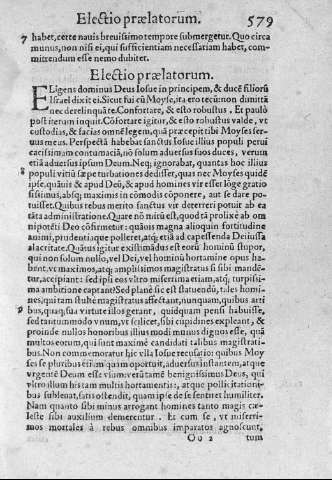 Electio prælatorum. 579
7 habet, certe nauis breuissimo tempore submergetur. Quo circa
munus, non nisi ei, qui sufficientiam necessariam habet, com-
mittendum esse nemo dubitet.
Electio prælatorum.
ELigens dominus Deus Iosue in principem, & ducē filiorū
Israel dixit ei. Sicut fui cū Moyse, ita ero tecū: non dimittā
nec derelinquā te. Confortare, & esto robustus. Et paulò
post iterum inquit. Cōfortare igitur, & esto robustus valde, vt
custodias, & facias omnē legem, quā præcepit tibi Moyses ser-
uus meus. Perspectā habebat sanctus Iosue illius populi perui
cacissimam contumaciā, nō solum aduersus suos duces, verum
etiā aduersus ipsum Deum. Neq; ignorabat, quantas hoc illius
8 populi vitiū sæpe turbationes dedisset, quas nec Moyses quidē
ipse, quāuis & apud Deū, & apud homines vir esset lōge gratio
sissimus, absq; maximis incōmodis cōponere, aut sedare po-
tuisset. Quibus rebus merito sanctus vir deterreri potuit ab ea
tāta administratione. Quare nō mirū est, quod tā prolixè ab om
nipotēti Deo cōfirmetur: quāuis magna alioquin fortitudine
animi, prudentiaque polleret, atq; etiā ad capessenda Dei iussa
alacritate. Quātus igitur existimādus est eorū hominū stupor,
qui non solum nullo, vel Dei, vel hominū hortamine opus ha-
bent, vt maximos, atq; amplissimos magistratus si sibi mandē-
tur, accipiant: sed ipsi eos vltro miserrima etiam, atq; turpissi-
ma ambitione captant? Sed planè sic est statuendū, tales homi-
nes, qui tam stultè magistratus affectant, nunquam, quibus arti
9 bus, quaq; sua virtute illos gerant, quidquam pensi habuisse,
sed tantummodo vnum, vt scilicet, sibi cupidines expleant, &
proinde nullos honoribus illius modi minus dignos esse, quā
multos eorum, qui sunt maximè candidati talibus magistrati-
bus. Non commemoratur hic vlla Iosue recusatio: quibus Moy-
ses se pluribus etiam quàm oportuit, aduersus instantem, atque
urgentē Deum esse viam verū tamē benignissimus Deus, qui
vltro illum his tam multis hortamentis, atque pollicitationi-
bus subleuat, satis ostendit, quam ipse de se sentiret humiliter.
Nam quanto sibi minus arrogant homines tanto magis cæ-
leste sibi auxilium demerentur. Et cum se, vt miserri-
mos mortales à rebus omnibus imparatos agnoscunt,
Oo 2 tum